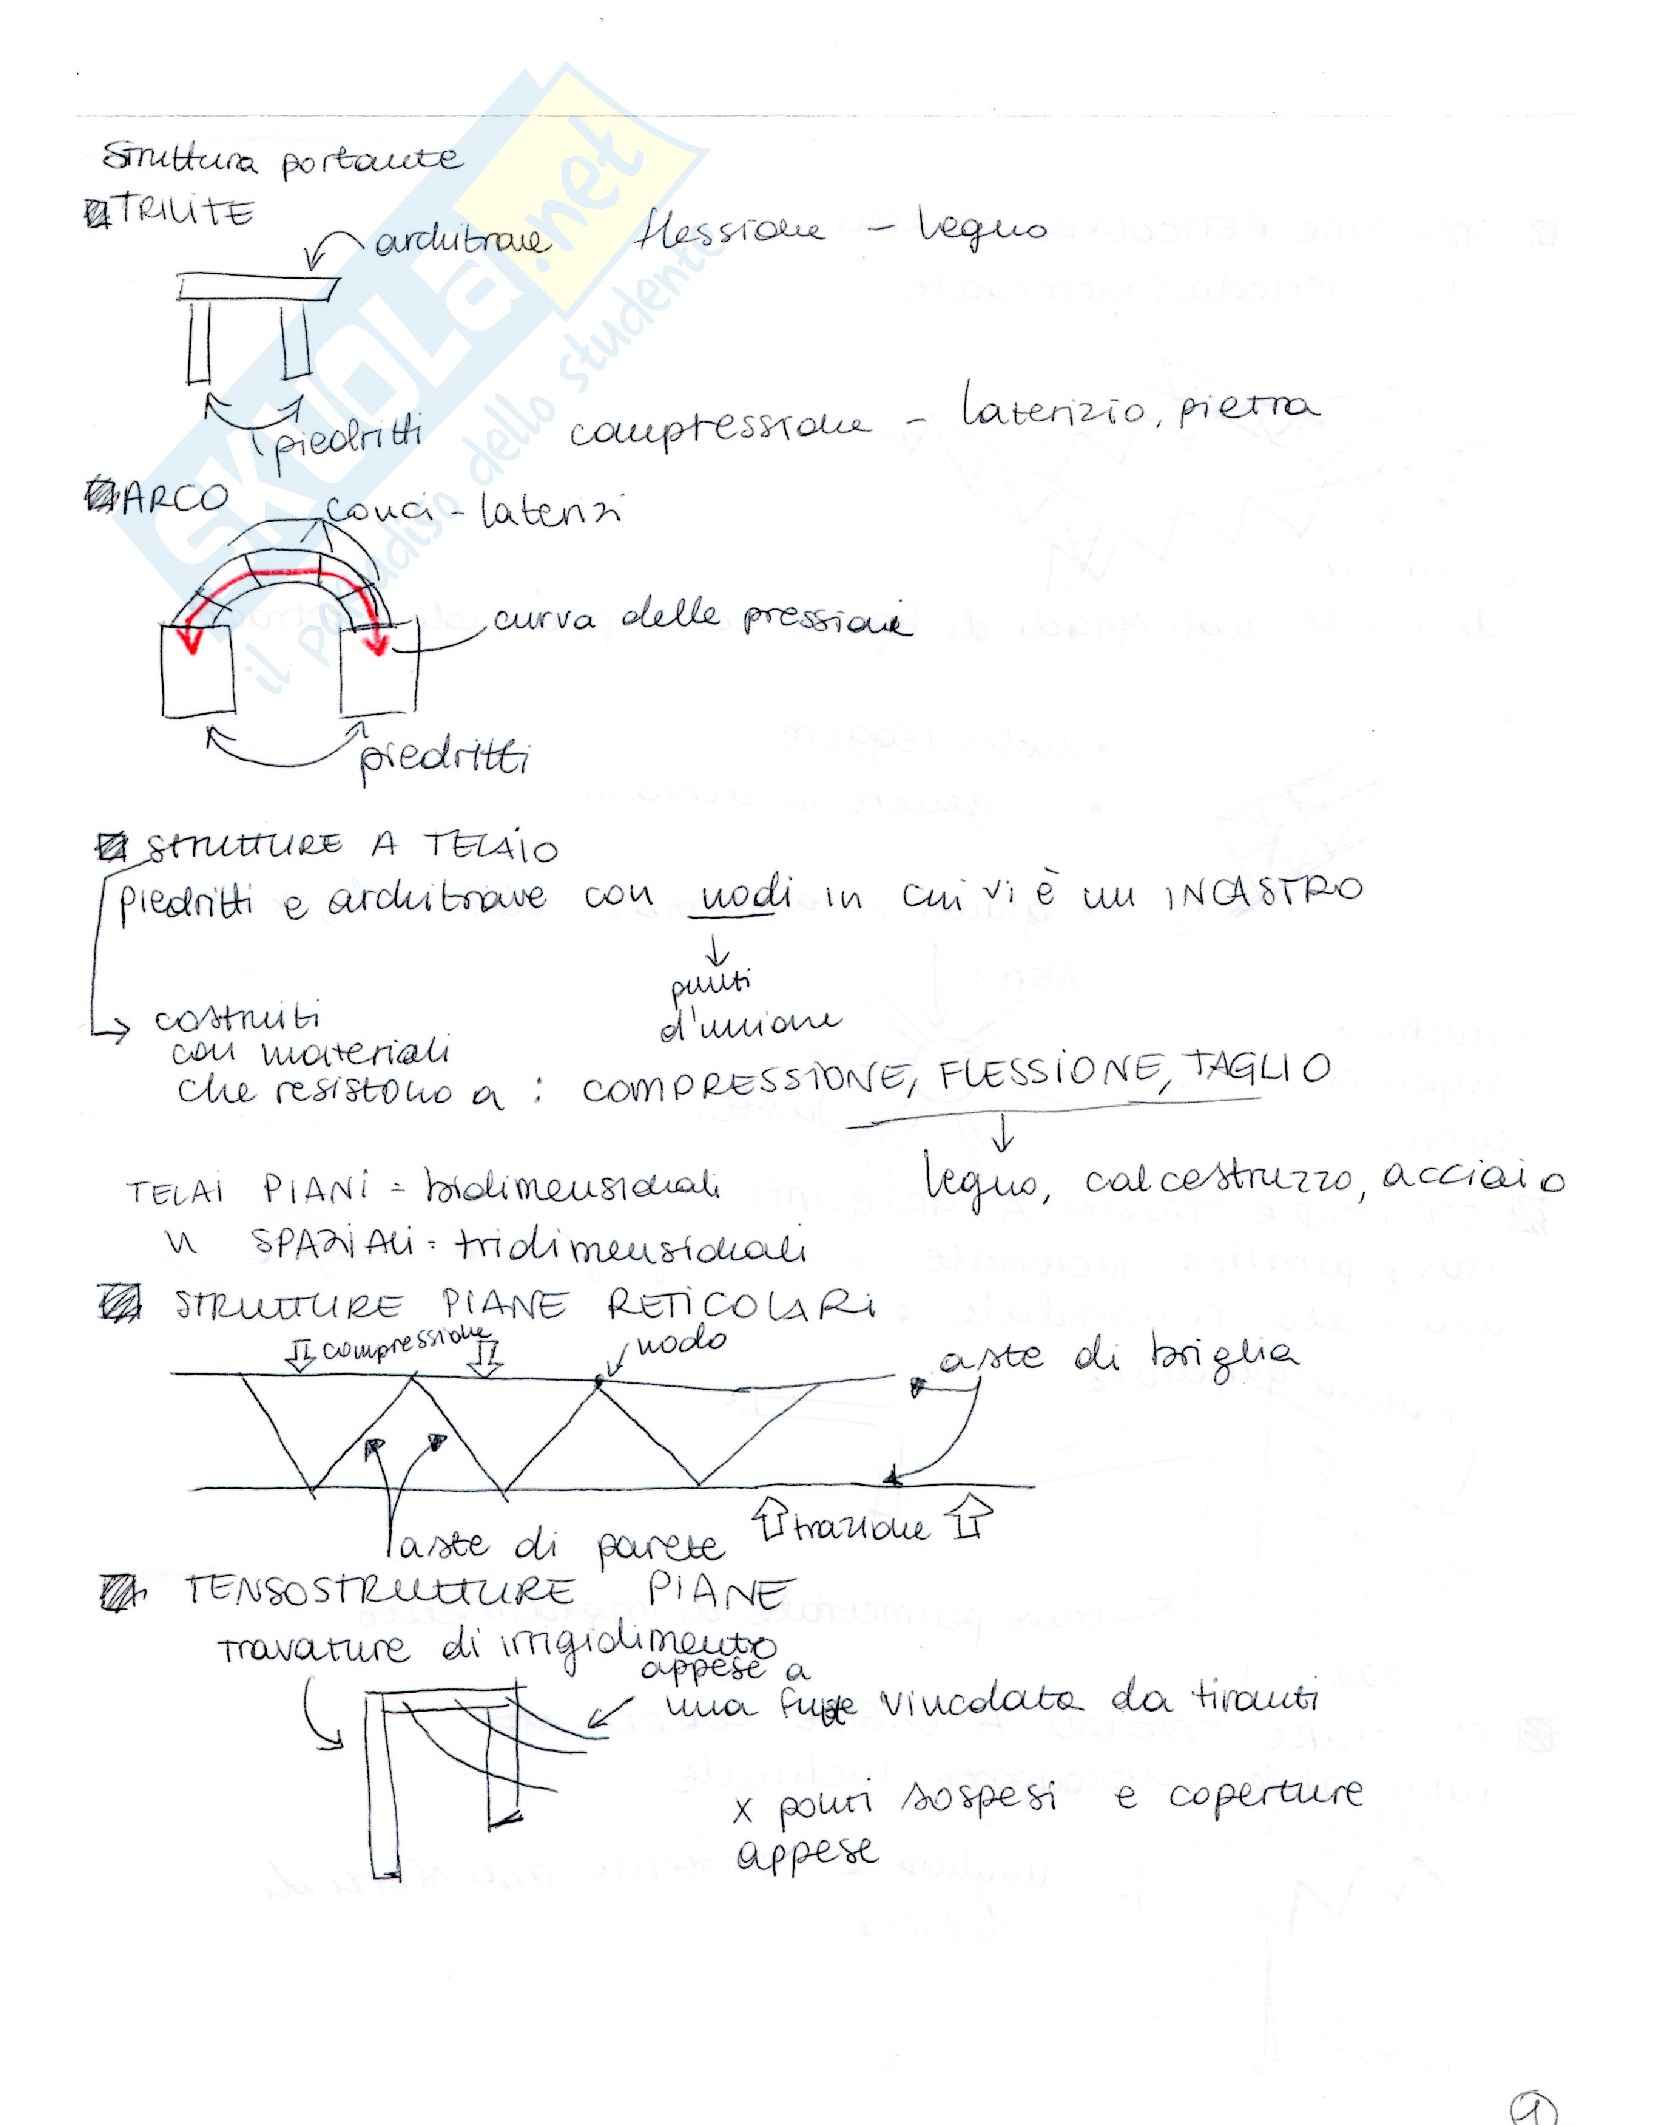 Struttura portante
TRILITE
architrave flessione - legno
piedritti compressione - laterizio, pietra
ARCO
conci - laterizi
curva delle pressioni
piedritti
STRUTTURE A TELAIO
piedritti e architrave con nodi in cui vi è un INCASTRO
punti
d'unione
costruiti
con materiali
che resistono a : COMPRESSIONE, FLESSIONE, TAGLIO
legno, calcestruzzo, acciaio
TELAI PIANI = bidimensionali
" SPAZIALI = tridimensionali
STRUTTURE PIANE RETICOLARI
compressione nodo
aste di briglia
aste di parete trazione
TENSOSTRUTTURE PIANE
travature di irrigidimento
appese a
una fune vincolata da tiranti
x ponti sospesi e coperture
appese
1
SKUOLA.net
il paradiso dello studente